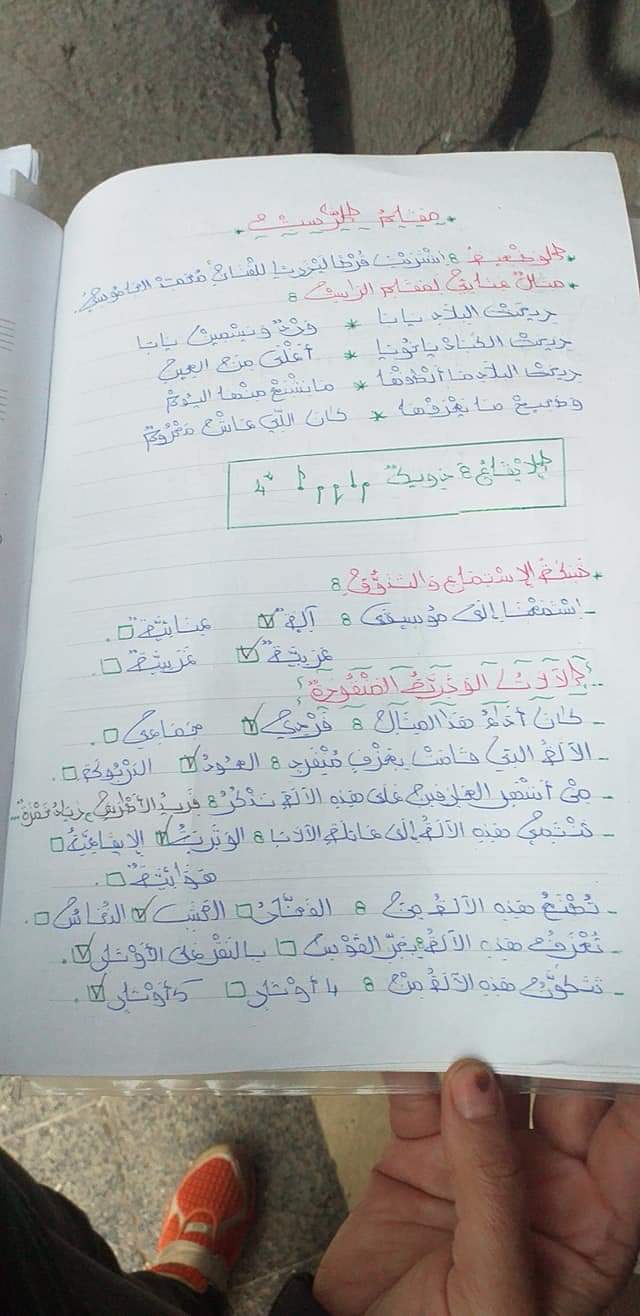 * مقام الرّست *
* الوضعية : اِشْتريت قرطا لبردتنا للفنان محمد الجاموسي.
* مثال غنائي لمقام الراست :
ريحة البلاد يابا * وردة وياسمين يابا
ريحة البلاد ياتونيا * أغلى من العين
ريحة البلاد ما أحلاها * ما نشبع منها اليوم
وصبع ما يعرفها * كان اللّي عاش محروم
الإيقاع : دويك 4
* فسحة الاستماع والتذوّق :
- اِستمعنا إلى موسيقى : آلية ☑ غنائية ☐.
عربيّة ☑ غربيّة ☐.
الآلات الوتريّة المنقورة
- كان أداء هذا المثال : فردي ☑ جماعي ☐.
- الآلة التي قامت بعزف منفرد : العود ☑ الدّربوكة ☐.
- من أشهر العازفين على هذه الآلة نذكر : فريد الأطرش، زياد غرسة...
- تنتمي هذه الآلة إلى عائلة الآلات : الوتريّة ☑ الإيقاعيّة ☐
هوائيّة ☐.
- تصنع هذه الآلة من : الفخّار ☐ الخشب ☑ النّحاس ☐.
- تعزف هذه الآلة : بجرّ القوس ☐ بالنقر على الأوتار ☑.
- تتكوّن هذه الآلة من : 4 أوتار ☐ 5 أوتار ☑.